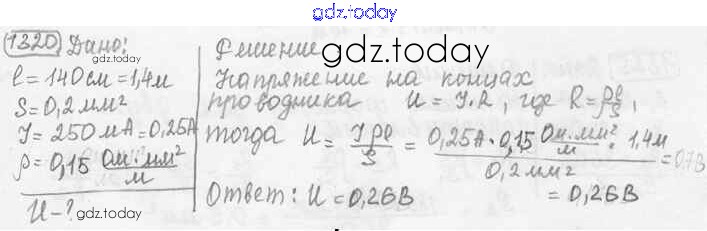 gdz.today
1320 Дано:
l = 140 см = 1,4 м
S = 0,2 мм²
I = 250 мА = 0,25А
ρ = 0,15 Ом·мм²/м
U - ?
gdz.today
Решение
gdz.today
Напряжение на концах
проводника U = I·R где R = ρl/S,
тогда U = Iρl/S = 0,25А · 0,15 Ом·мм²/м · 1,4м / 0,2 мм² = 0,7В
= 0,26В
Ответ: U = 0,26В
gdz.today